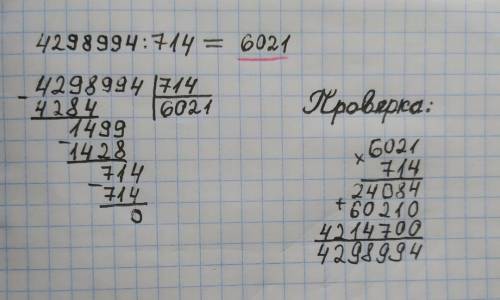 4298994:714 = 6021
- 4298994 | 714
4284 | 6021
1499
- 1428
714
- 714
0
Проверка:
× 6021
714
24084
+ 60210
4214700
4298994